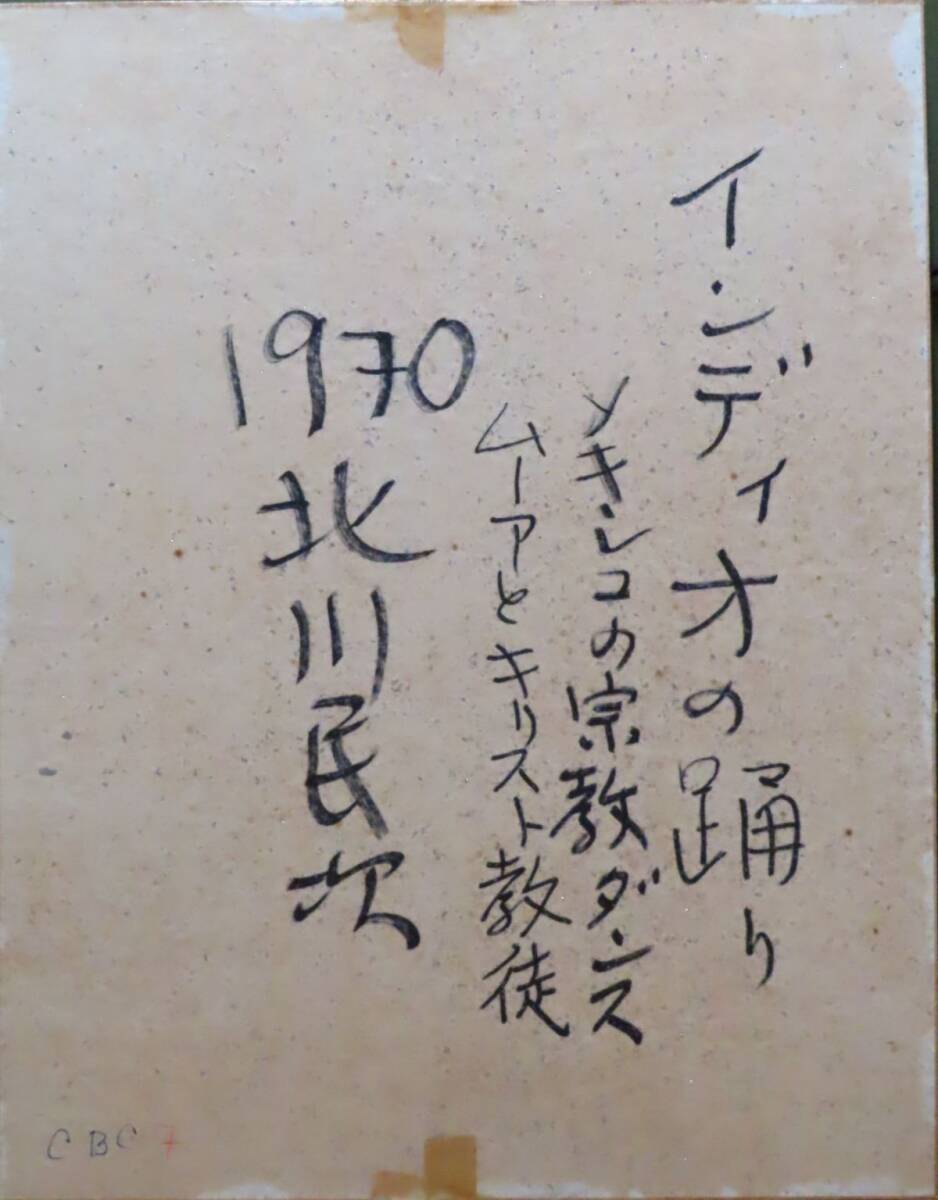 インディオの踊り
メキシコの宗教ダンス
ムーアとキリスト教徒
1970
北川民次
CBC 7